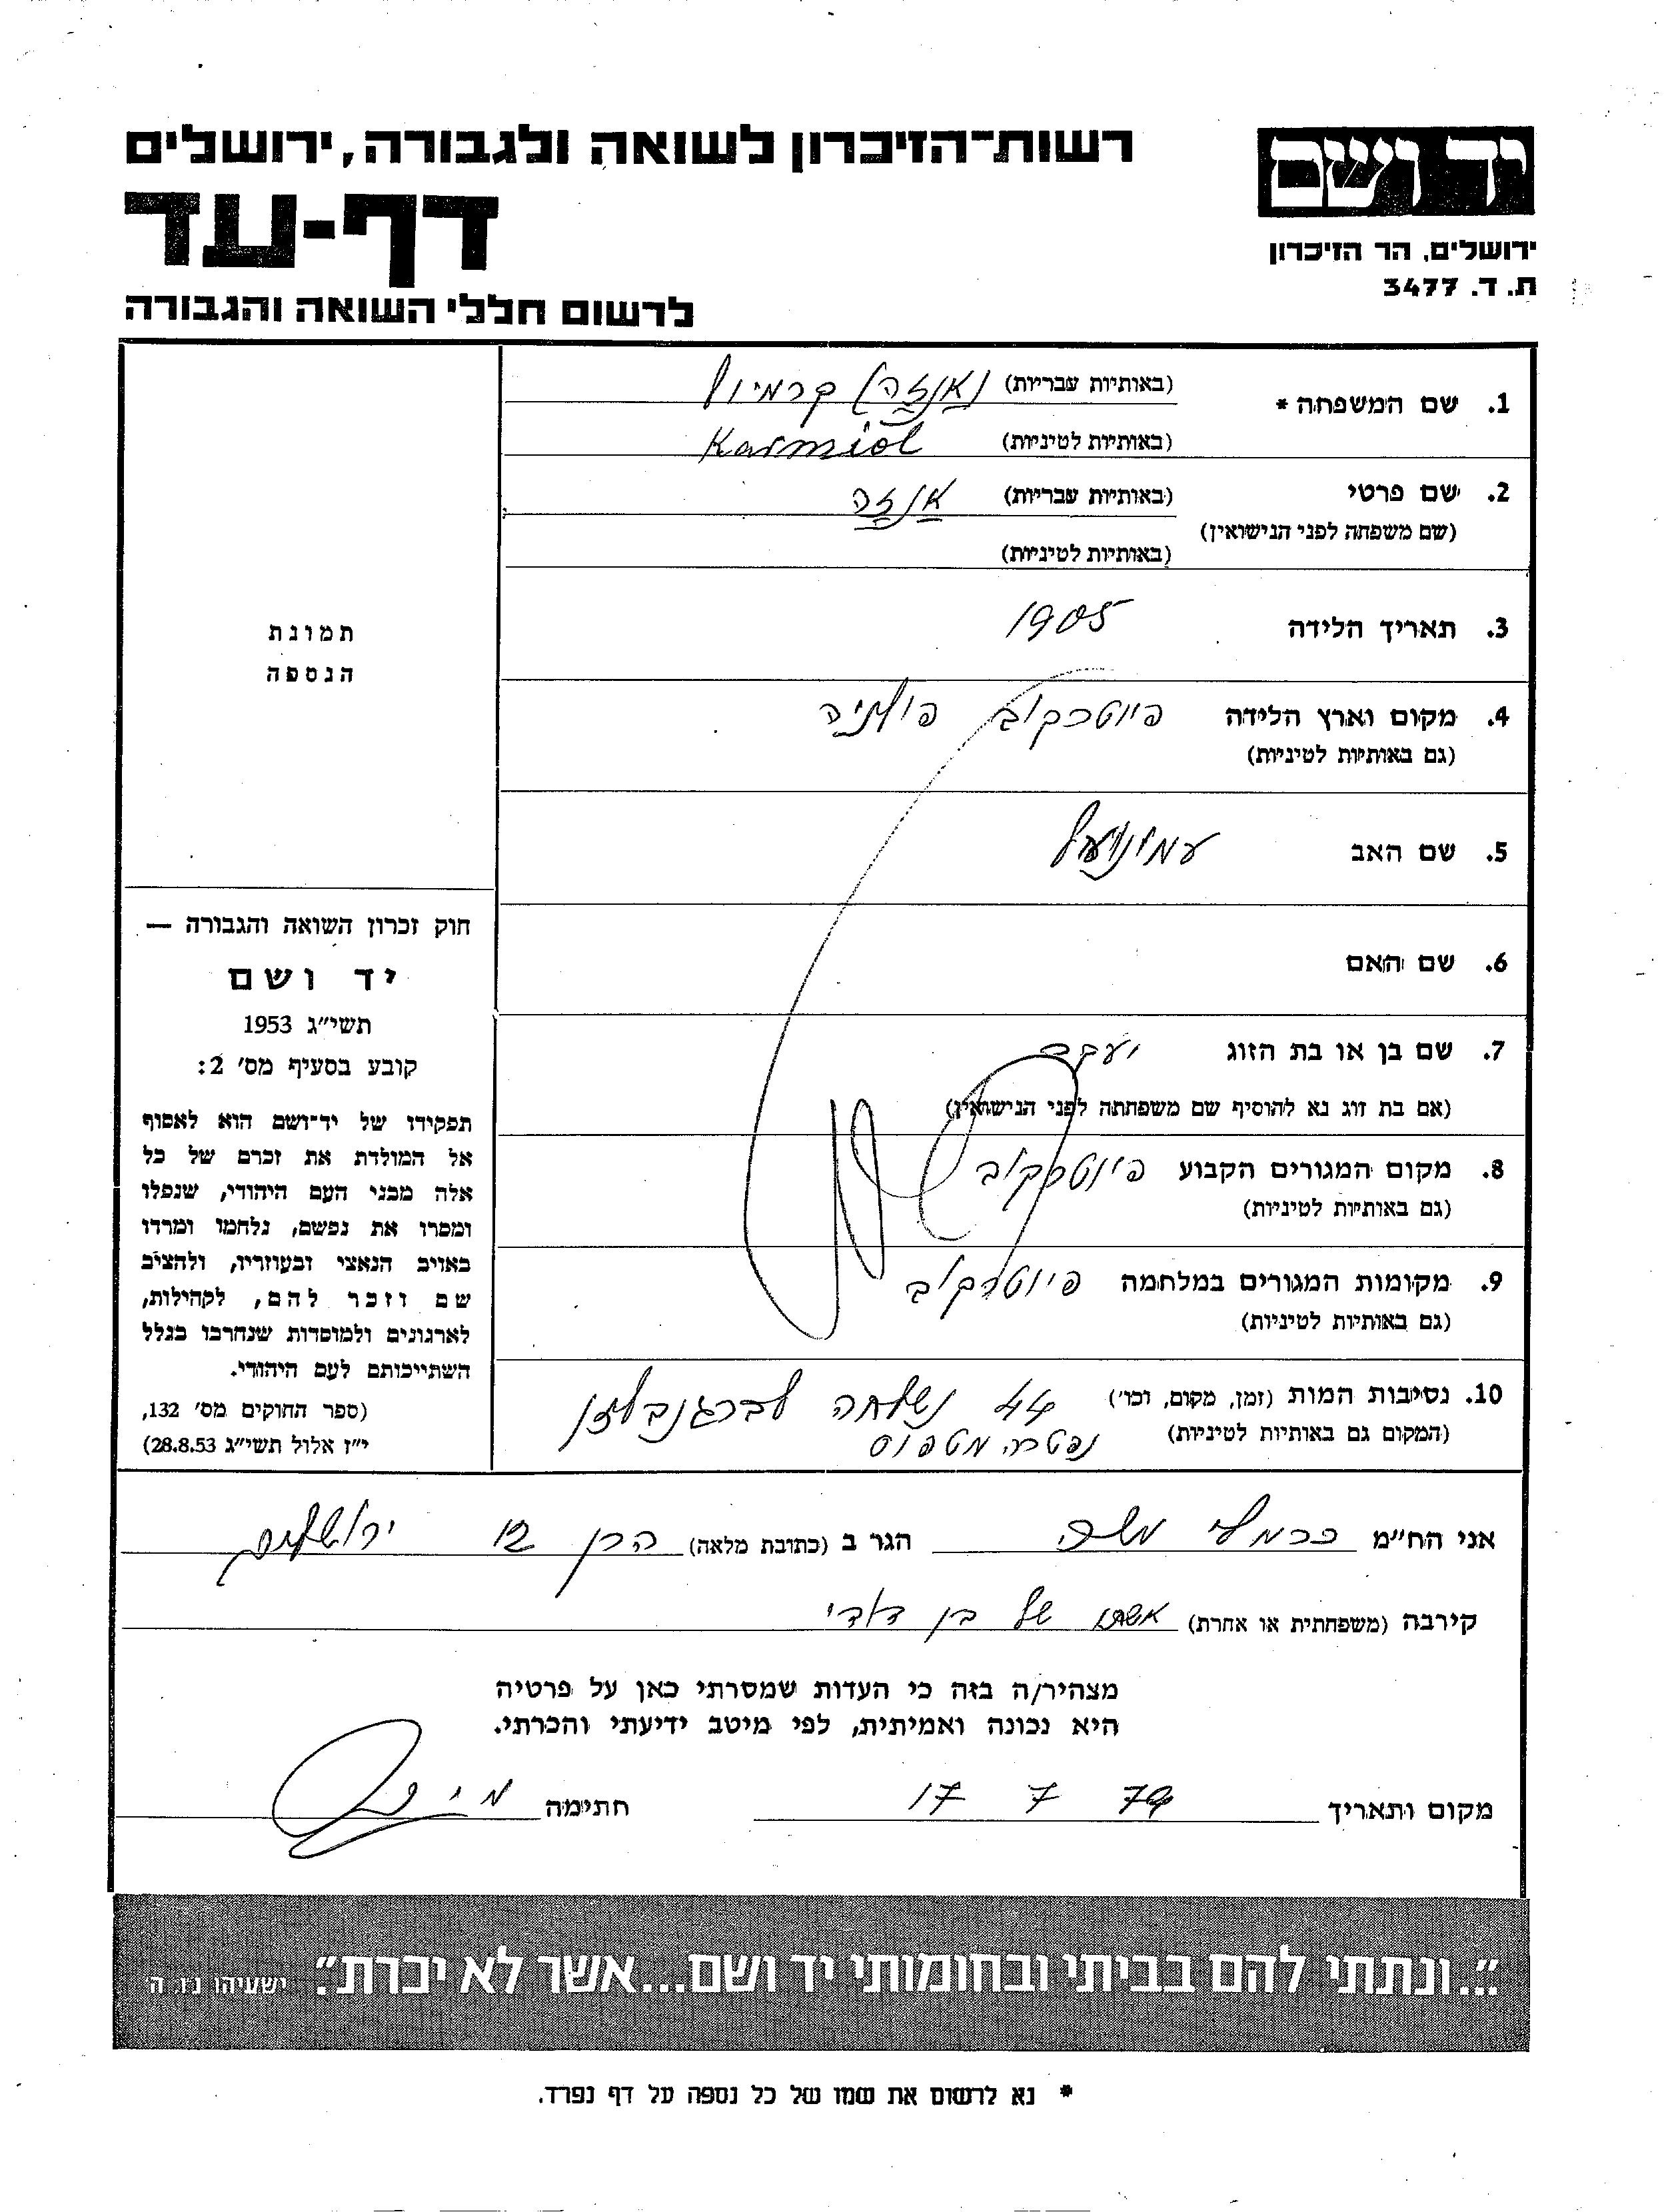 רשות־הזיכרון לשואה ולגבורה, ירושלים
יד ושם
דף-עד
ירושלים, הר הזיכרון
ת. ד. 3477
לרשום חללי השואה והגבורה
1. שם המשפחה * (באותיות עבריות) (אנזה) קרמיול
(באותיות לטיניות) Karmiol
2. שם פרטי (באותיות עבריות) אנזה
(שם משפחה לפני הנישואין)
(באותיות לטיניות)
3. תאריך הלידה 1905
4. מקום וארץ הלידה פיוטרקוב פולניה
(גם באותיות לטיניות)
5. שם האב
6. שם האם
7. שם בן או בת הזוג יעקב
(אם בת זוג נא להוסיף שם משפחתה לפני הנישואין)
8. מקום המגורים הקבוע פיוטרקוב
(גם באותיות לטיניות)
9. מקומות המגורים במלחמה פיוטרקוב
(גם באותיות לטיניות)
10. נסיבות המות (זמן, מקום, וכו') 44 נשלחה לברגנבלזן
(המקום גם באותיות לטיניות) נפטרה מטפוס
תמונת
הנספה
חוק זכרון השואה והגבורה —
יד ושם
תשי״ג 1953
קובע בסעיף מס׳ 2:
תפקידו של יד־ושם הוא לאסוף
אל המולדת את זכרם של כל
אלה מבני העם היהודי, שנפלו
ומסרו את נפשם, נלחמו ומרדו
באויב הנאצי ובעוזריו, ולהציב
שם וזכר להם, לקהילות,
לארגונים ולמוסדות שנחרבו בגלל
השתייכותם לעם היהודי.
(ספר החוקים מס׳ 132,
י״ז אלול תשי״ג 28.8.53)
אני הח״מ כרמלי הגר ב (כתובת מלאה) הרן 12 ירושלים
קירבה (משפחתית או אחרת) אשתו של בן דודי
מצהיר/ה בזה כי העדות שמסרתי כאן על פרטיה
היא נכונה ואמיתית, לפי מיטב ידיעתי והכרתי.
מקום ותאריך 17 7 74 חתימה
״...ונתתי להם בביתי ובחומותי יד ושם...אשר לא יכרת״. ישעיהו נו, ה׳
* נא לרשום את שמו של כל נספה על דף נפרד.